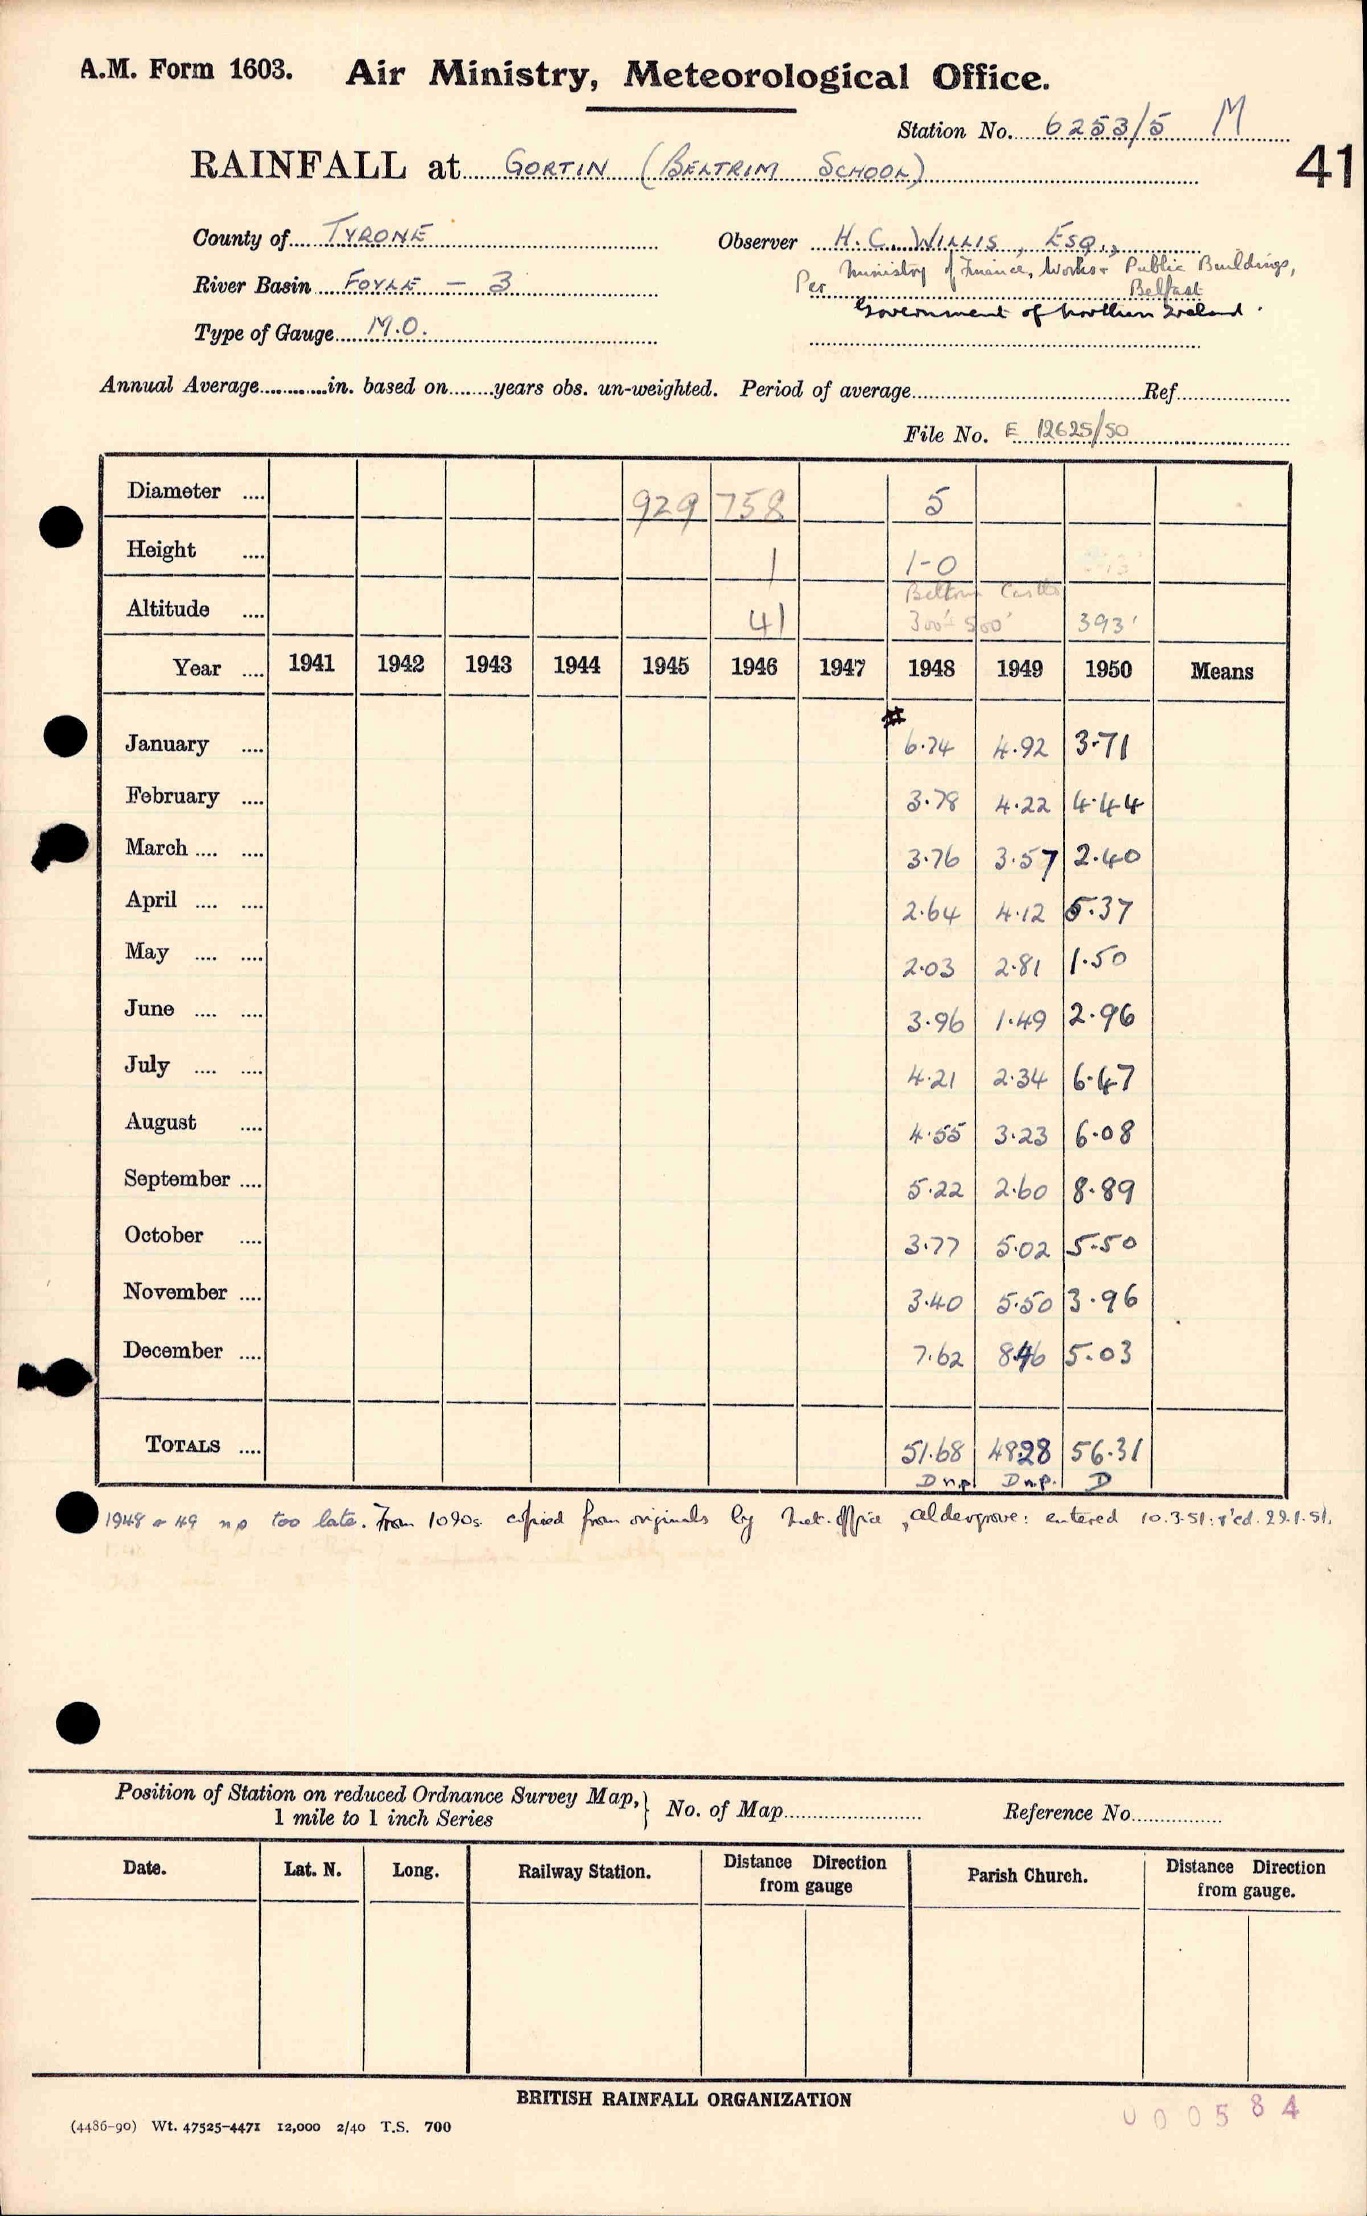 A.M. Form 1603. Air Ministry, Meteorological Office.
Station No. 6253/5 M
41
RAINFALL at GORTIN (BELTRIM SCHOOL)
County of TYRONE Observer H. C. WILLIS, ESQ.,
River Basin FOYLE - 3 Per Ministry of Finance, Works & Public Buildings, Belfast
Government of Northern Ireland.
Type of Gauge M.O.
Annual Average in. based on years obs. un-weighted. Period of average Ref
File No. E 12625/50
Diameter 929 758 5
Height 1 1-0
Beltrim Castle
Altitude 41 300'± 500' 393'
Year 1941 1942 1943 1944 1945 1946 1947 1948 1949 1950 Means
#
January 6.74 4.92 3.71
February 3.78 4.22 4.44
March 3.76 3.57 2.40
April 2.64 4.12 5.37
May 2.03 2.81 1.50
June 3.96 1.49 2.96
July 4.21 2.34 6.47
August 4.55 3.23 6.08
September 5.22 2.60 8.89
October 3.77 5.02 5.50
November 3.40 5.50 3.96
December 7.62 8.46 5.03
TOTALS 51.68 48.28 56.31
D n.p. D n.p. D
1948 & 49 n p too late. From 1090s copied from originals by Met. Office, Aldergrove: entered 10.3.51: r'ed. 29.1.51.
Position of Station on reduced Ordnance Survey Map, 1 mile to 1 inch Series } No. of Map Reference No.
Date. Lat. N. Long. Railway Station. Distance Direction from gauge Parish Church. Distance Direction from gauge.
BRITISH RAINFALL ORGANIZATION
(4486-90) Wt. 47525-4471 12,000 2/40 T.S. 700
000584